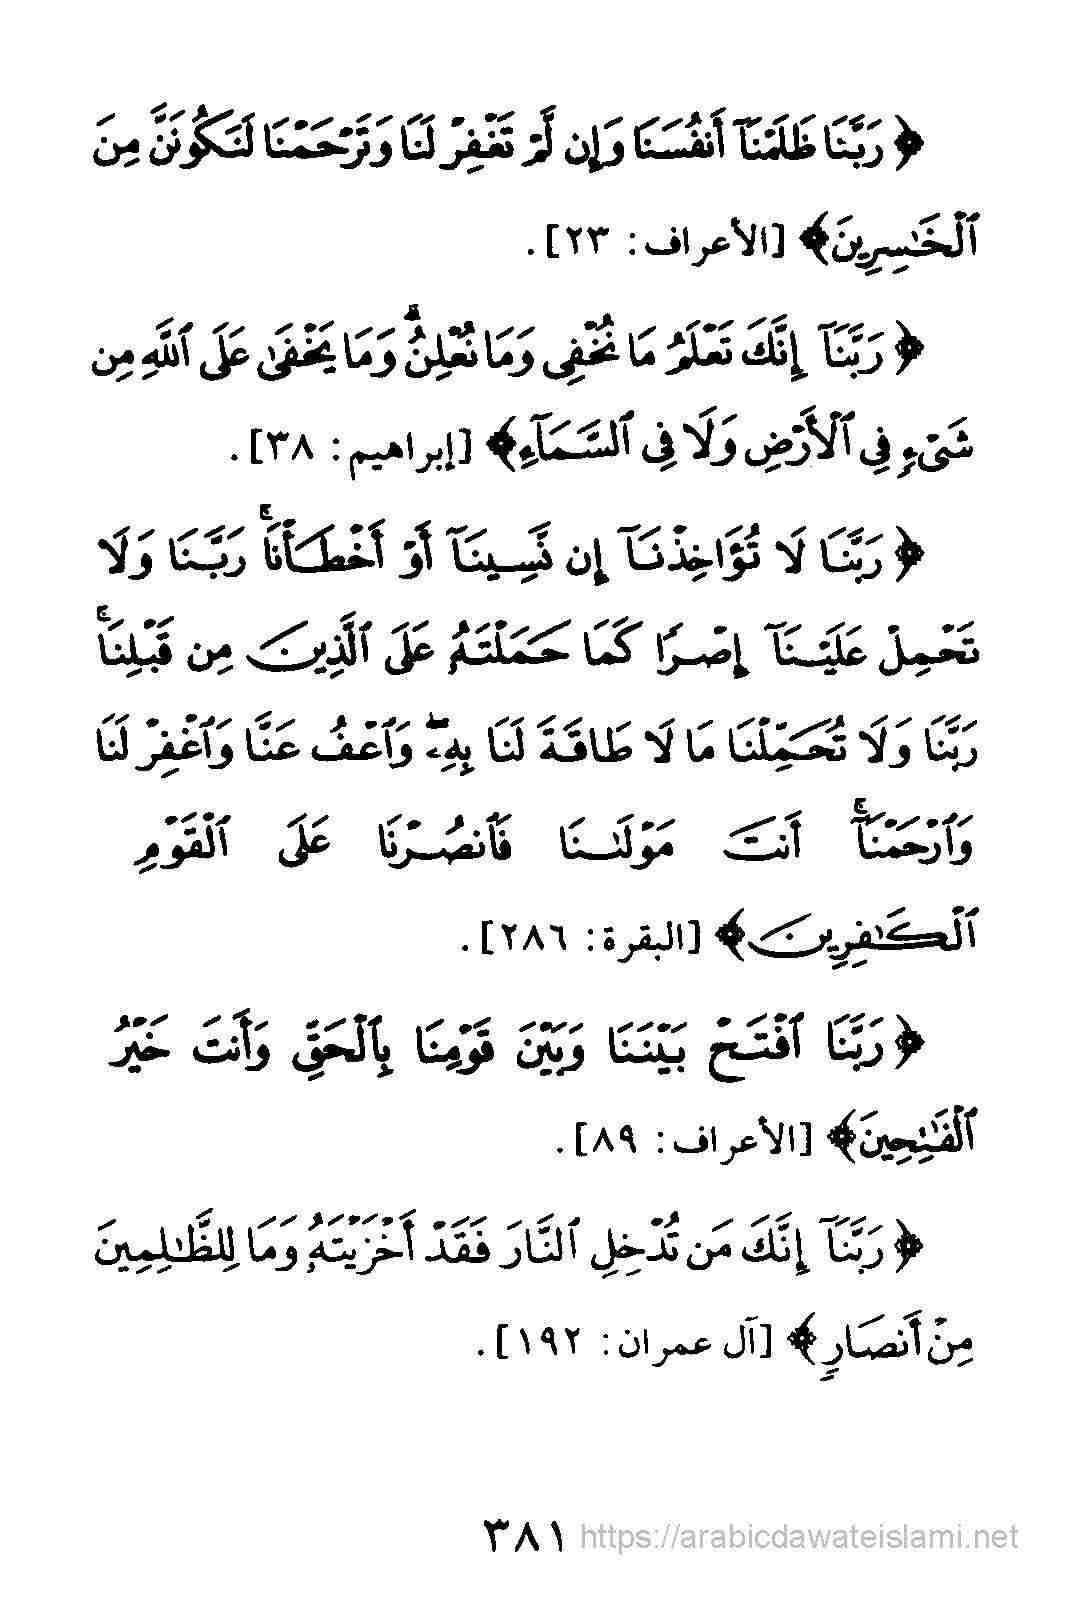 ﴿ رَبَّنَا ظَلَمْنَآ أَنفُسَنَا وَإِن لَّمْ تَغْفِرْ لَنَا وَتَرْحَمْنَا لَنَكُونَنَّ مِنَ
ٱلْخَـٰسِرِينَ﴾ [الأعراف: ٢٣].
﴿ رَبَّنَآ إِنَّكَ تَعْلَمُ مَا نُخْفِى وَمَا نُعْلِنُ ۗ وَمَا يَخْفَىٰ عَلَى ٱللَّهِ مِن
شَىْءٍ فِى ٱلْأَرْضِ وَلَا فِى ٱلسَّمَآءِ﴾ [إبراهيم: ٣٨].
﴿ رَبَّنَا لَا تُؤَاخِذْنَآ إِن نَّسِينَآ أَوْ أَخْطَأْنَا ۚ رَبَّنَا وَلَا
تَحْمِلْ عَلَيْنَآ إِصْرًا كَمَا حَمَلْتَهُۥ عَلَى ٱلَّذِينَ مِن قَبْلِنَا ۚ
رَبَّنَا وَلَا تُحَمِّلْنَا مَا لَا طَاقَةَ لَنَا بِهِۦ ۖ وَٱعْفُ عَنَّا وَٱغْفِرْ لَنَا
وَٱرْحَمْنَآ ۚ أَنتَ مَوْلَىٰنَا فَٱنصُرْنَا عَلَى ٱلْقَوْمِ
ٱلْكَـٰفِرِينَ﴾ [البقرة: ٢٨٦].
﴿ رَبَّنَا ٱفْتَحْ بَيْنَنَا وَبَيْنَ قَوْمِنَا بِٱلْحَقِّ وَأَنتَ خَيْرُ
ٱلْفَـٰتِحِينَ﴾ [الأعراف: ٨٩].
﴿ رَبَّنَآ إِنَّكَ مَن تُدْخِلِ ٱلنَّارَ فَقَدْ أَخْزَيْتَهُۥ وَمَا لِلظَّـٰلِمِينَ
مِنْ أَنصَارٍ﴾ [آل عمران: ١٩٢].
٣٨١ https://arabicdawateislami.net